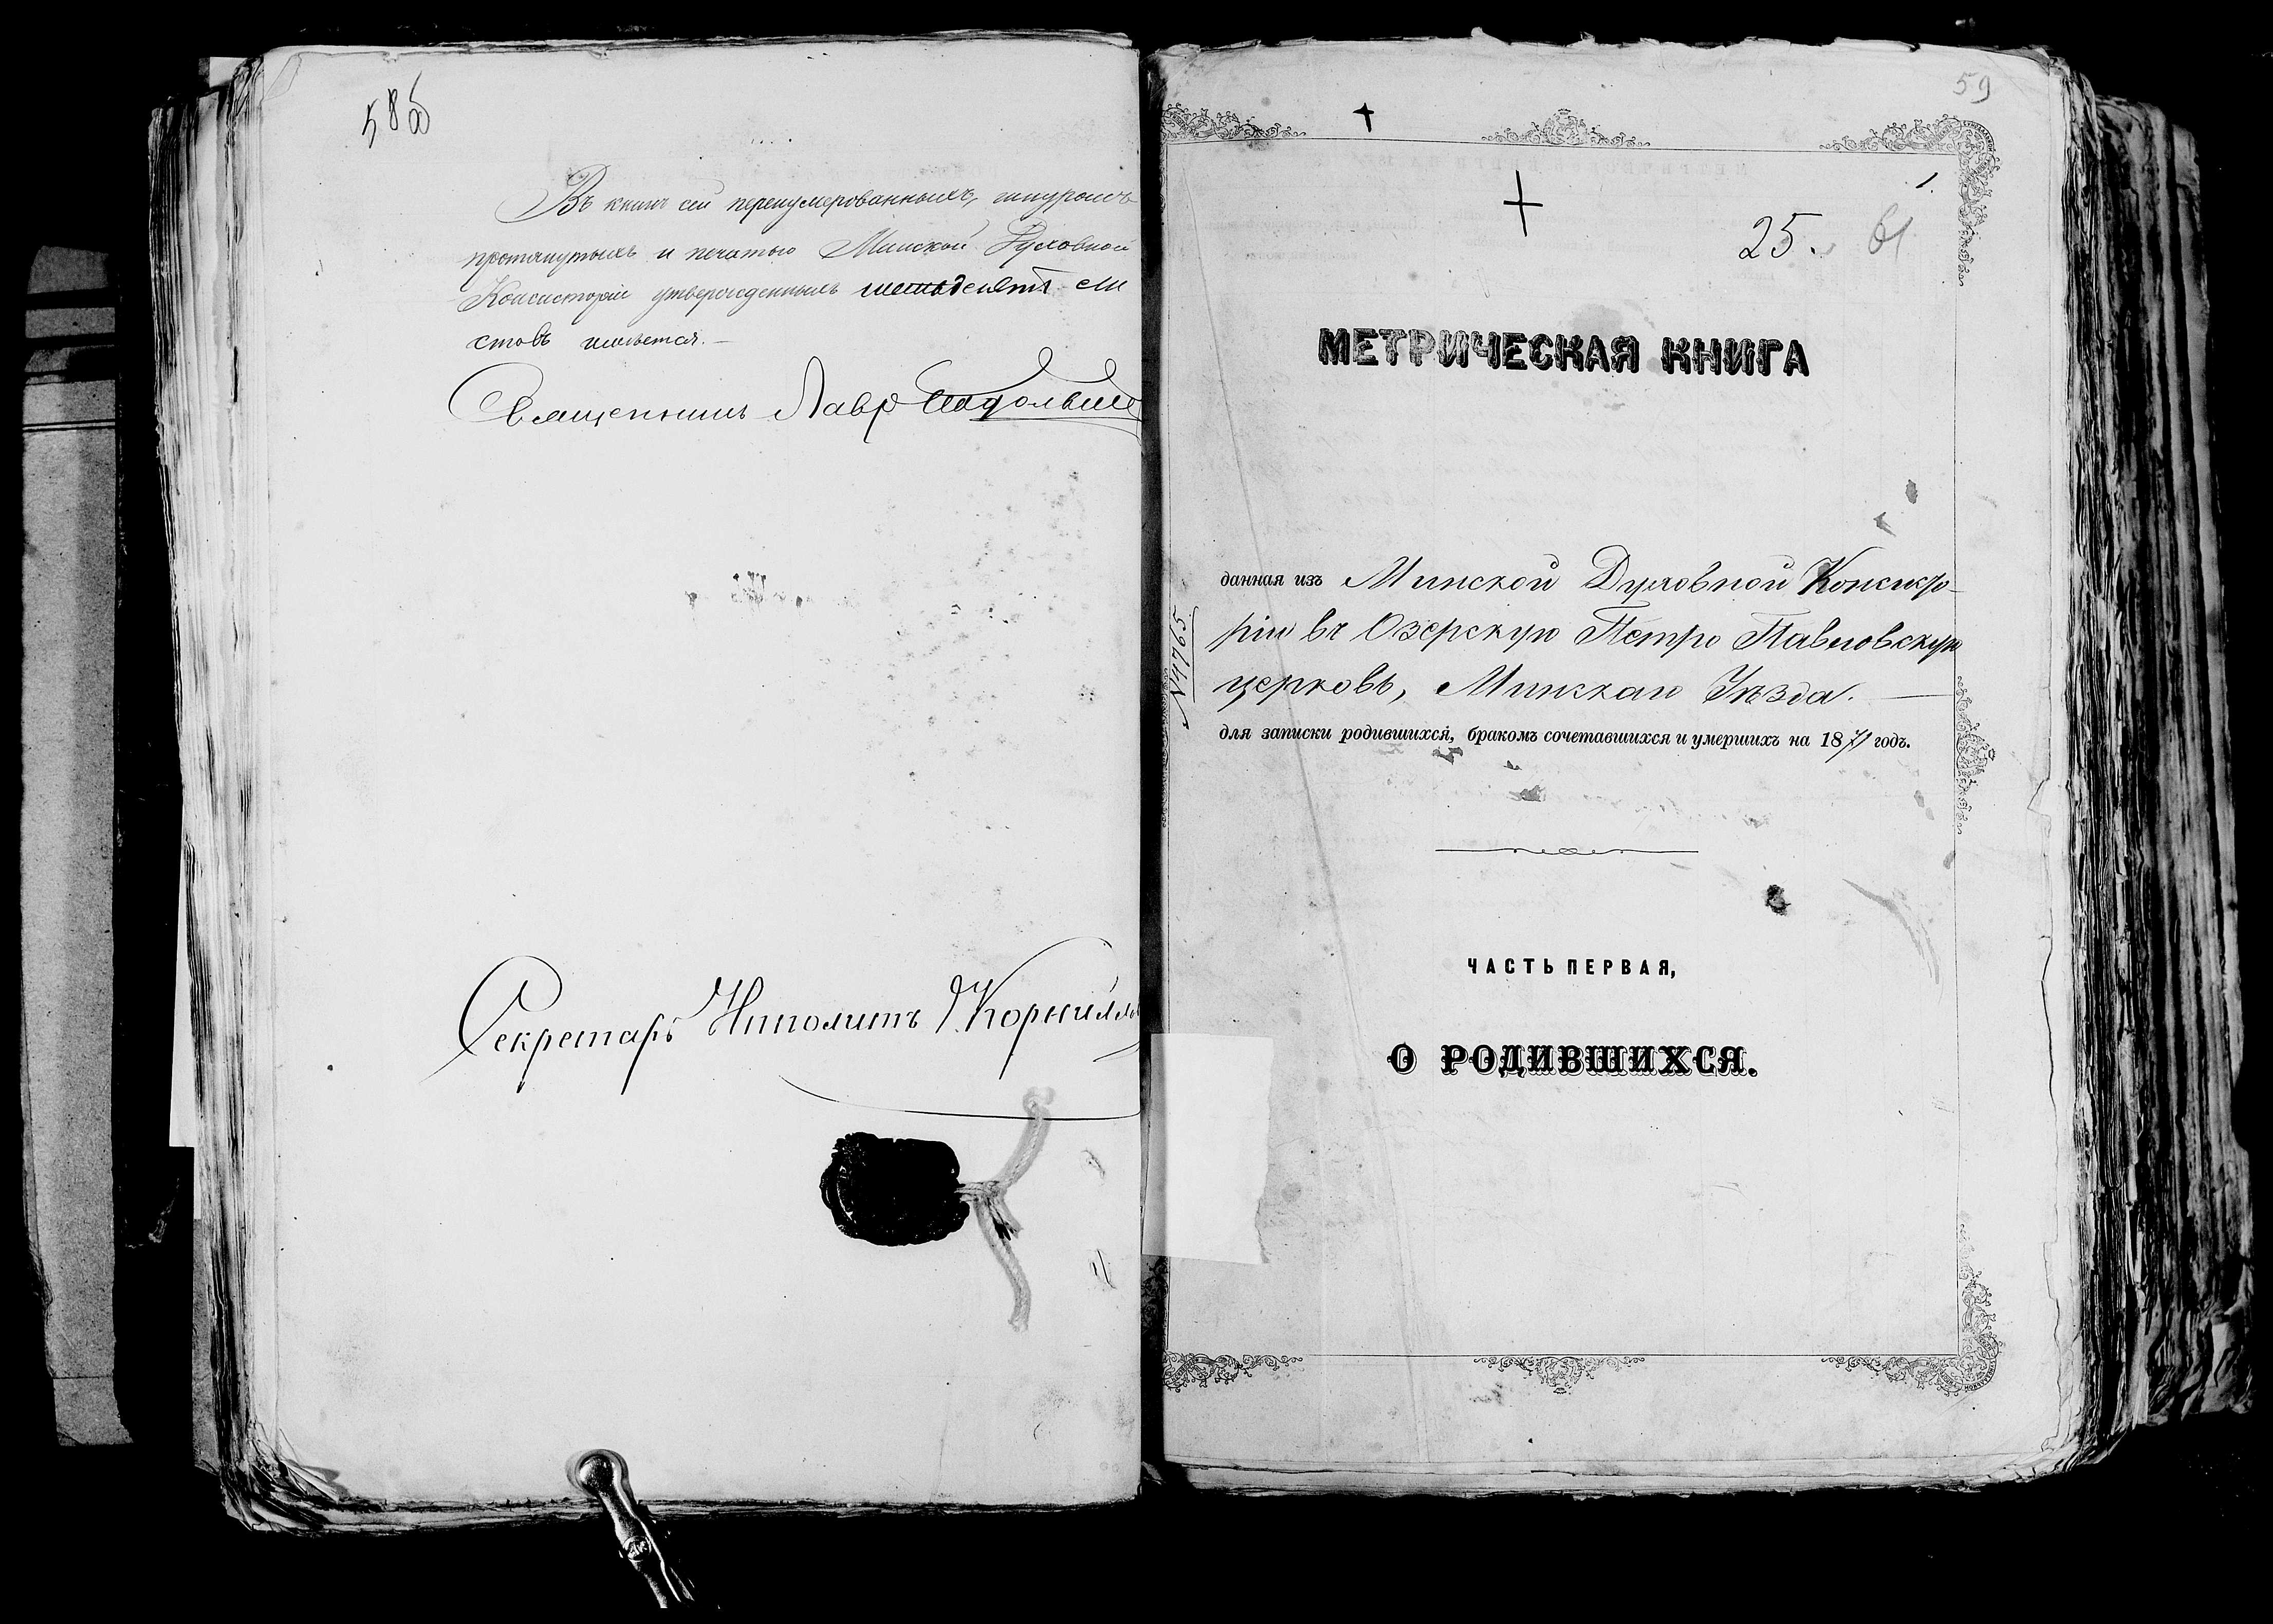 58б
Въ книге сей перенумерованныхъ, шнуромъ
протянутыхъ и печатью Минской Духовной
Консисторіи утвержденныхъ ли
стовъ имѣется. —
Священникъ Лавр
Секретарь Ипполитъ
59
1.
25.
МЕТРИЧЕСКАЯ КНИГА
данная изъ Минской Духовной Консисто-
ріи въ Озерскую Петро Павловскую
церковь, Минскаго Уѣзда. —
для записки родившихся, бракомъ сочетавшихся и умершихъ на 1871 годъ.
№4765
ЧАСТЬ ПЕРВАЯ,
О РОДИВШИХСЯ.